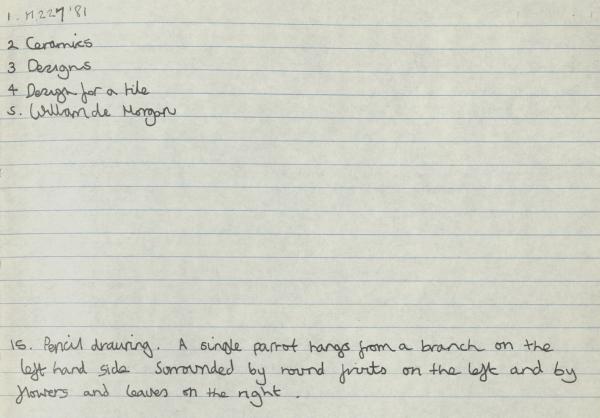 1. M227'81
2 Ceramics
3 Designs
4 Design for a tile
5. William de Morgan
15. Pencil drawing. A single parrot hangs from a branch on the
left hand side surrounded by round fruits on the left and by
flowers and leaves on the right.